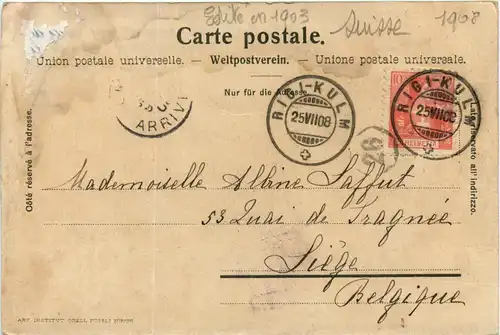 Edité en 1903 Suisse 1908
Carte postale.
Union postale universelle. – Weltpostverein. – Unione postale universale.
Nur für die Adresse.
RIGI-KULM
25VII08
RIGI-KULM
25VII08
10
HELVETIA
26
ARRIV
Côté réservé à l'adresse.
Lato riservato all'indirizzo.
Mademoiselle Albine Saffut
53 Quai de Fragnée
Liège
Belgique
ART. INSTITUT ORELL FÜSSLI ZÜRICH